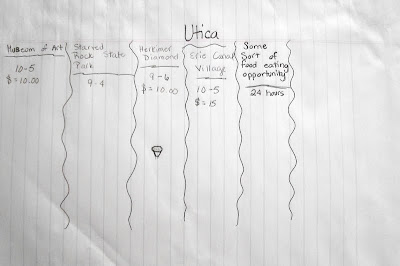 Utica
Museum of Art
10-5
$=10.00
Starved
Rock State
Park
9-4
Herkimer
Diamond
9-6
$=10.00
Erie Canal
Village
10-5
$=15
Some
Sort of
food eating
opportunity
24 hours